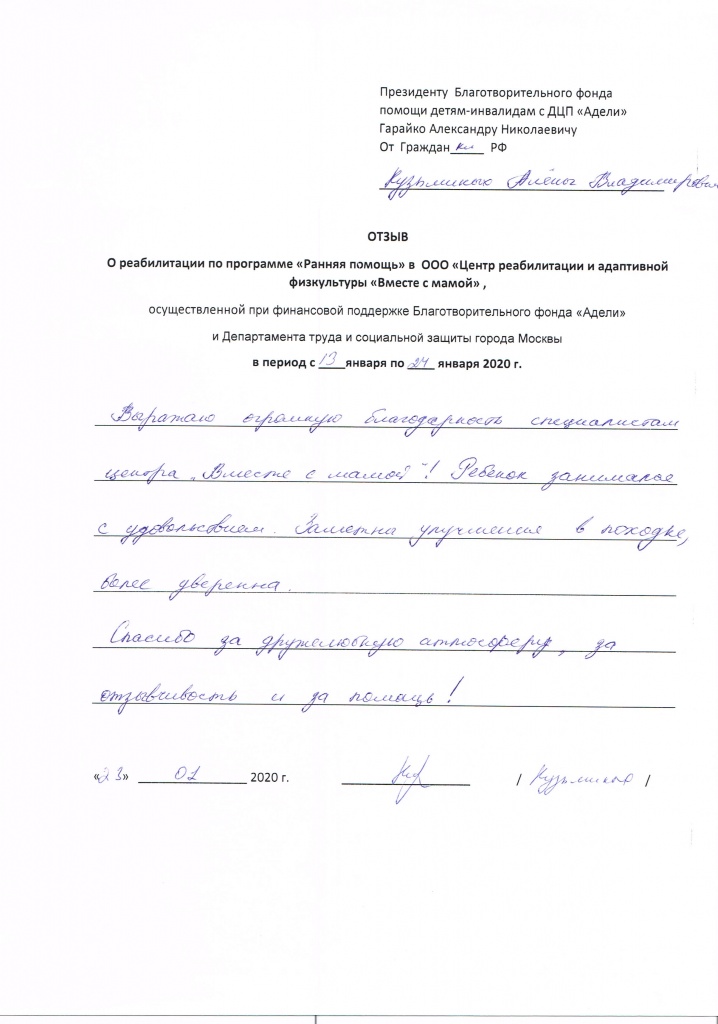 Президенту Благотворительного фонда
помощи детям-инвалидам с ДЦП «Адели»
Гарайко Александру Николаевичу
От Граждан ки РФ
Кузьминых Алёны
ОТЗЫВ
О реабилитации по программе «Ранняя помощь» в ООО «Центр реабилитации и адаптивной
физкультуры «Вместе с мамой» ,
осуществленной при финансовой поддержке Благотворительного фонда «Адели»
и Департамента труда и социальной защиты города Москвы
в период с 13 января по 24 января 2020 г.
Выражаю огромную благодарность специалистам
центра „Вместе с мамой"! Ребенок занимался
с удовольствием. Заметна улучшения в походке,
более уверенна.
Спасибо за дружелюбную атмосферу, за
отзывчивость и за помощь!
«23» 01 2020 г. / Кузьминых /